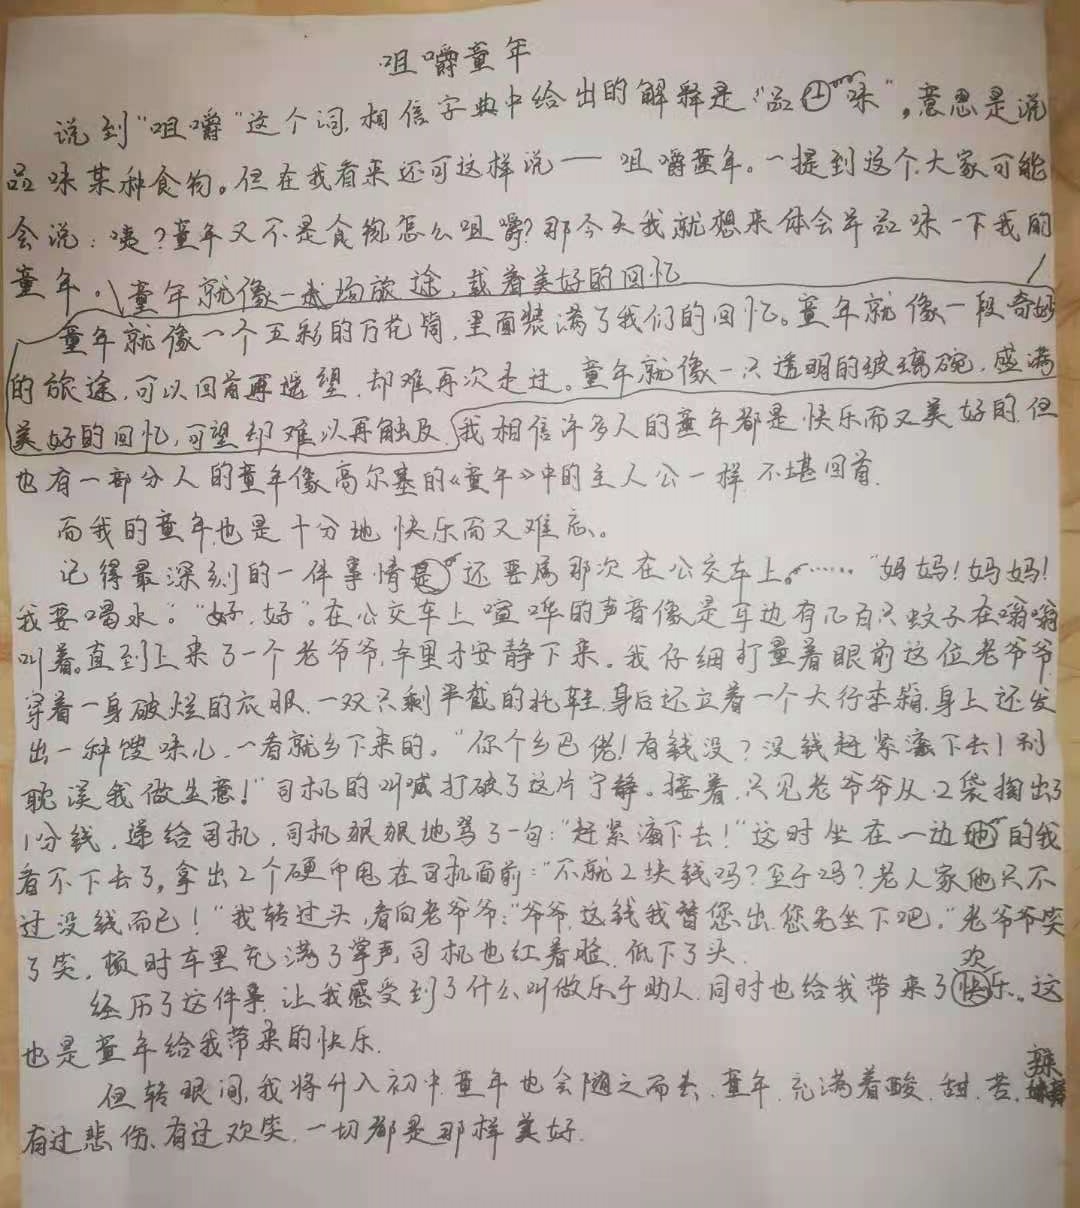 咀嚼童年
说到"咀嚼"这个词,相信字典中给出的解释是"品味",意思是说
品味某种食物。但在我看来还可这样说——咀嚼童年。一提到这个大家可能
会说:咦?童年又不是食物怎么咀嚼?那今天我就想来体会并品味一下我的
童年。童年就像一场旅途,载着美好的回忆
童年就像一个五彩的万花筒,里面装满了我们的回忆。童年就像一段奇妙
的旅途,可以回首再遥望,却难再次走过。童年就像一只透明的玻璃碗,盛满
美好的回忆,可望却难以再触及。我相信许多人的童年都是快乐而又美好的,但
也有一部分人的童年像高尔基的《童年》中的主人公一样,不堪回首.
而我的童年也是十分地快乐而又难忘。
记得最深刻的一件事情还要属那次在公交车上。……"妈妈!妈妈!
我要喝水。""好,好"。在公交车上喧哗的声音像是耳边有几百只蚊子在嗡嗡
叫着。直到上来了一个老爷爷,车里才安静下来。我仔细打量着眼前这位老爷爷
穿着一身破烂的衣服,一双只剩半截的拖鞋,身后还立着一个大行李箱,身上还发
出一种馊味儿,一看就乡下来的。"你个乡巴佬!有钱没?没钱赶紧滚下去!别
耽误我做生意!"司机的叫喊打破了这片宁静。接着,只见老爷爷从口袋掏出了
1分钱,递给司机,司机狠狠地骂了一句:"赶紧滚下去!"这时坐在一边的我
看不下去了,拿出2个硬币甩在司机面前:"不就2块钱吗?至于吗?老人家他只不
过没钱而已!"我转过头,看向老爷爷:"爷爷,这钱我替您出,您先坐下吧。"老爷爷笑
了笑,顿时车里充满了掌声,司机也红着脸,低下了头.
经历了这件事,让我感受到了什么叫做乐于助人,同时也给我带来了欢乐。这
也是童年给我带来的快乐.
但转眼间,我将升入初中,童年也会随之而去,童年,充满着酸、甜、苦、辣
有过悲伤、有过欢笑,一切都是那样美好.